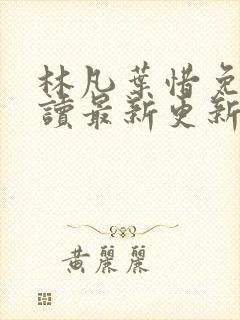 林凡葉惜免
讀最新更新
黃麗麗